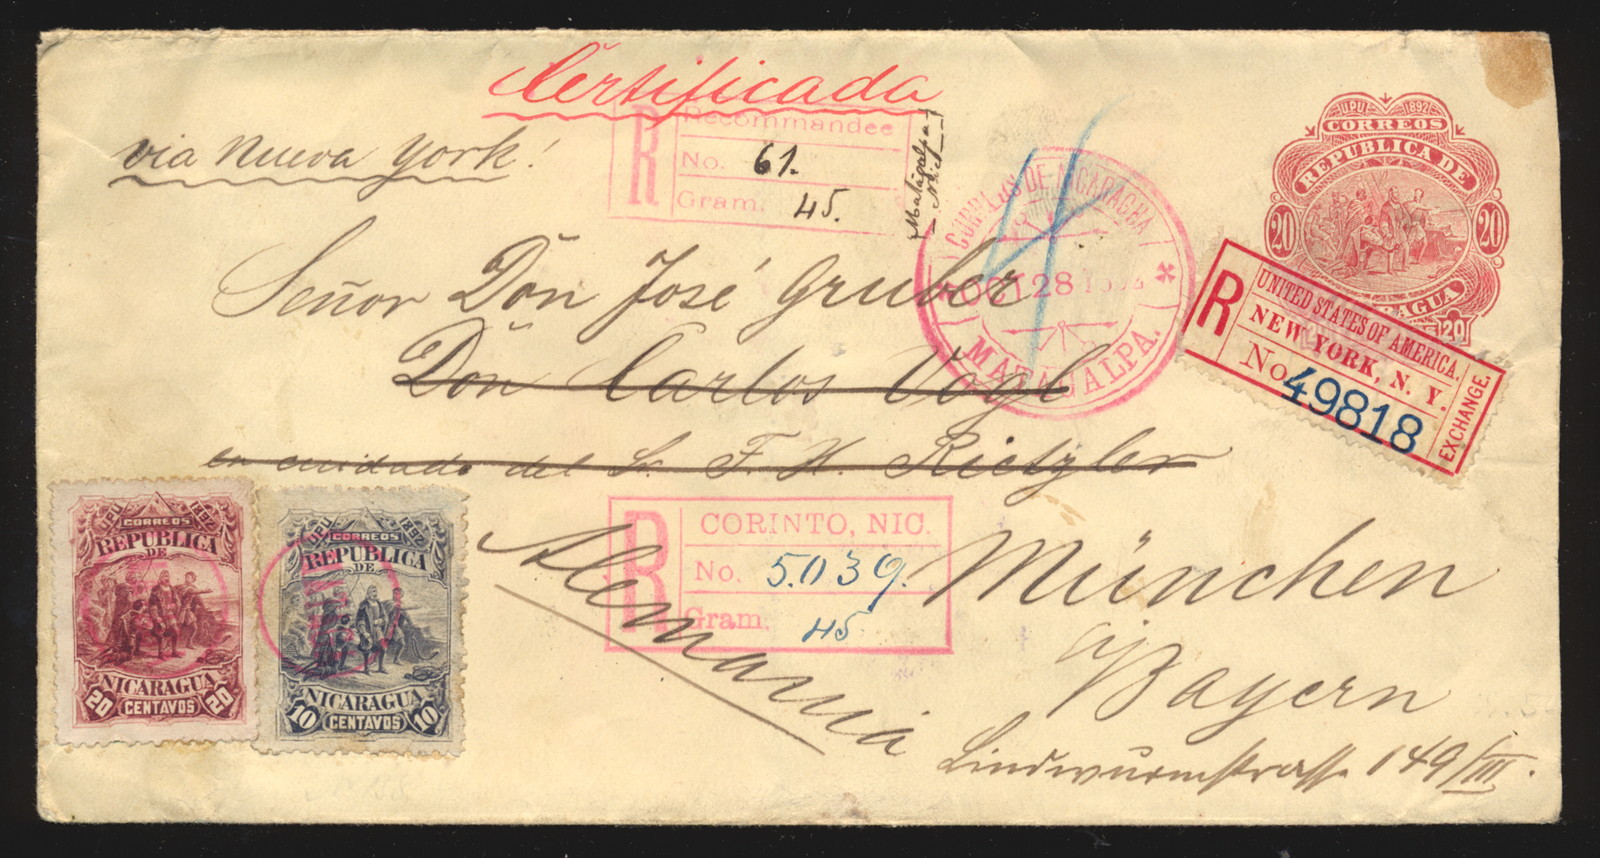 Certificada
via Nueva York!
R
Recommandee
No. 61.
Gram. 45.
Matagalpa
Nic.
CORREOS DE NICARAGUA
OCT 28 1892
MATAGALPA.
UPU 1892
CORREOS
REPUBLICA DE
20 20
AGUA
20
R
UNITED STATES OF AMERICA.
NEW YORK, N. Y.
No 49818
EXCHANGE.
Señor Dōn José Gruber
Dōn Carlos Vogl
en cuidado del Sr. F. H. Rietzler
R
CORINTO, NIC.
No. 5.039.
Gram. 45
München
Bayern
Alemania
Lindwurmstrasse 149/III.
UPU 1892
CORREOS
REPUBLICA
DE
NICARAGUA
20 CENTAVOS 20
UPU 1892
CORREOS
REPUBLICA
DE
NICARAGUA
10 CENTAVOS 10